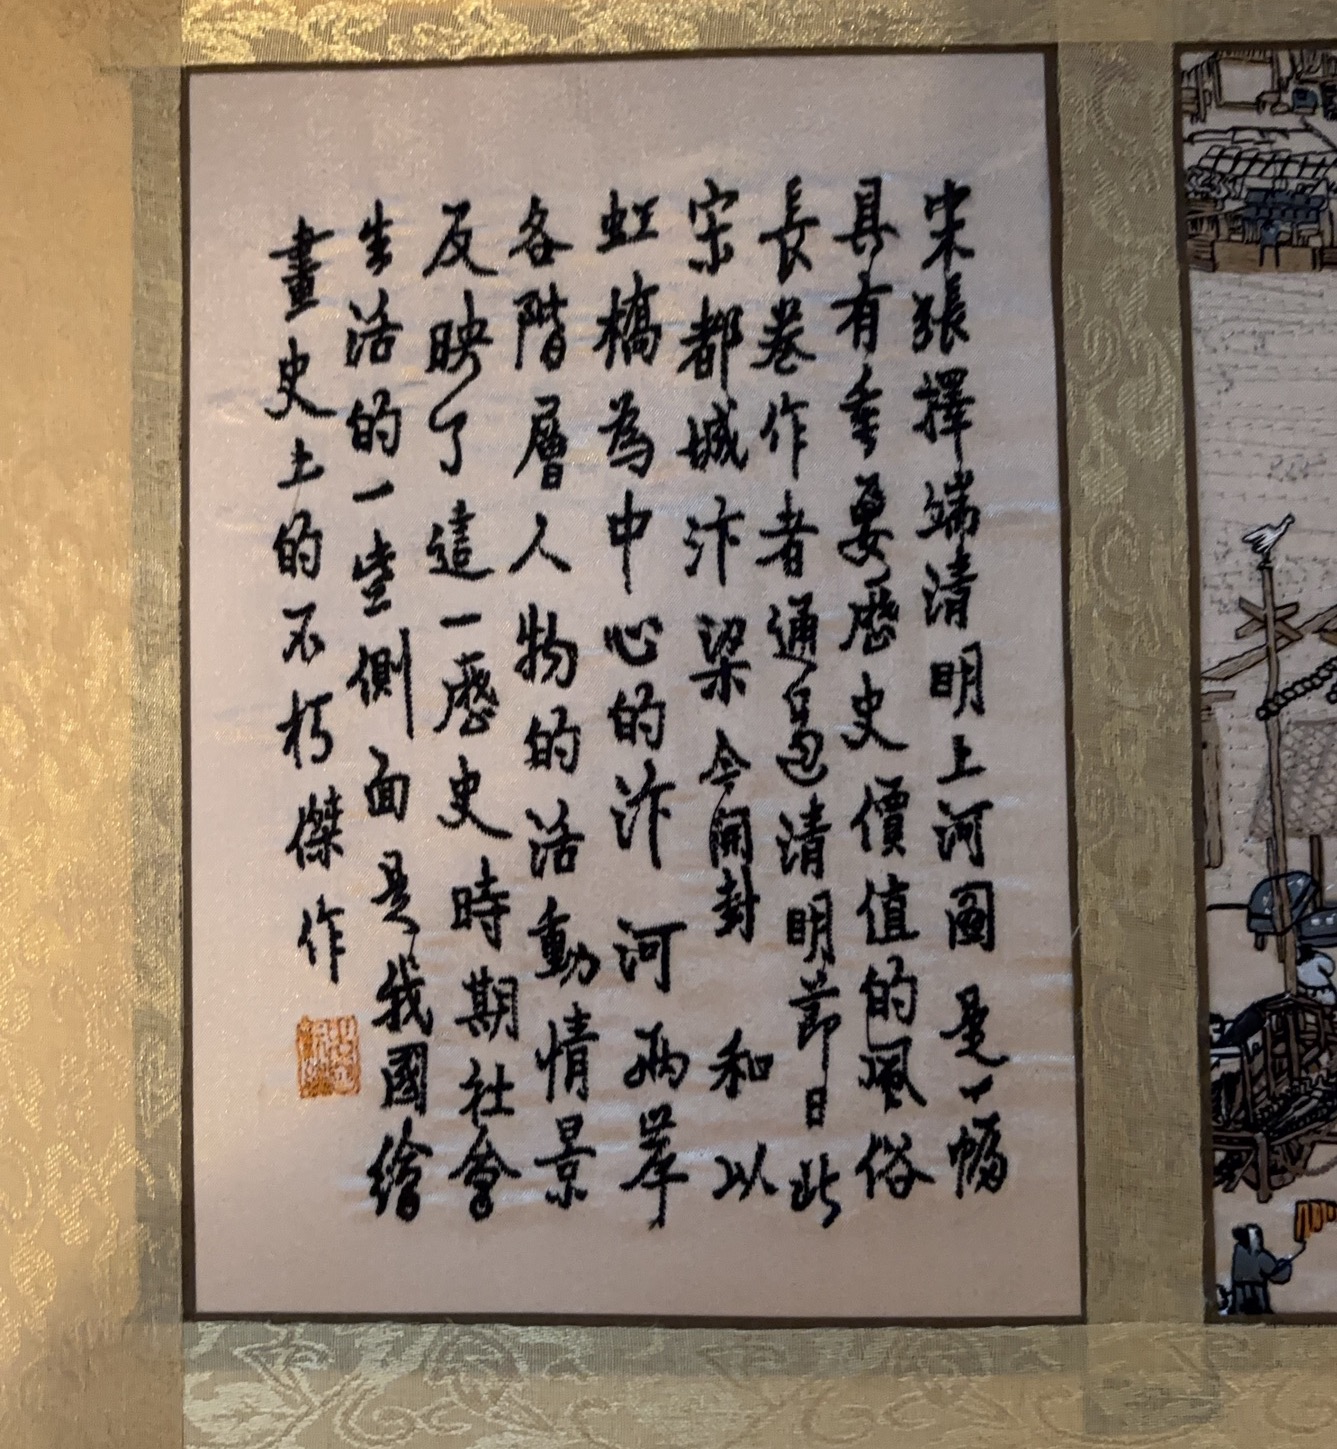 宋張擇端清明上河圖是一幅
具有重要歷史價值的風俗
長卷作者通過清明節日此
宋都城汴梁今開封和以
虹橋為中心的汴河兩岸
各階層人物的活動情景
反映了這一歷史時期社會
生活的一些側面是我國繪
畫史上的不朽傑作